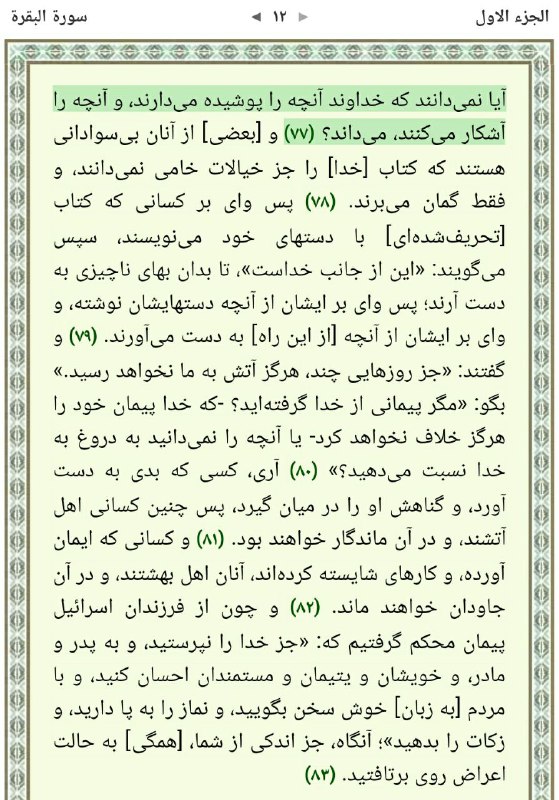 الجزء الاول ◄ ١٢ ► سورة البقرة
آیا نمی‌دانند که خداوند آنچه را پوشیده می‌دارند، و آنچه را
آشکار می‌کنند، می‌داند؟ (۷۷) و [بعضی] از آنان بی‌سوادانی
هستند که کتاب [خدا] را جز خیالات خامی نمی‌دانند، و
فقط گمان می‌برند. (۷۸) پس وای بر کسانی که کتاب
[تحریف‌شده‌ای] با دستهای خود می‌نویسند، سپس
می‌گویند: «این از جانب خداست»، تا بدان بهای ناچیزی به
دست آرند؛ پس وای بر ایشان از آنچه دستهایشان نوشته، و
وای بر ایشان از آنچه [از این راه] به دست می‌آورند. (۷۹) و
گفتند: «جز روزهایی چند، هرگز آتش به ما نخواهد رسید.»
بگو: «مگر پیمانی از خدا گرفته‌اید؟ -که خدا پیمان خود را
هرگز خلاف نخواهد کرد- یا آنچه را نمی‌دانید به دروغ به
خدا نسبت می‌دهید؟» (۸۰) آری، کسی که بدی به دست
آورد، و گناهش او را در میان گیرد، پس چنین کسانی اهل
آتشند، و در آن ماندگار خواهند بود. (۸۱) و کسانی که ایمان
آورده، و کارهای شایسته کرده‌اند، آنان اهل بهشتند، و در آن
جاودان خواهند ماند. (۸۲) و چون از فرزندان اسرائیل
پیمان محکم گرفتیم که: «جز خدا را نپرستید، و به پدر و
مادر، و خویشان و یتیمان و مستمندان احسان کنید، و با
مردم [به زبان] خوش سخن بگویید، و نماز را به پا دارید، و
زکات را بدهید»؛ آنگاه، جز اندکی از شما، [همگی] به حالت
اعراض روی برتافتید. (۸۳)